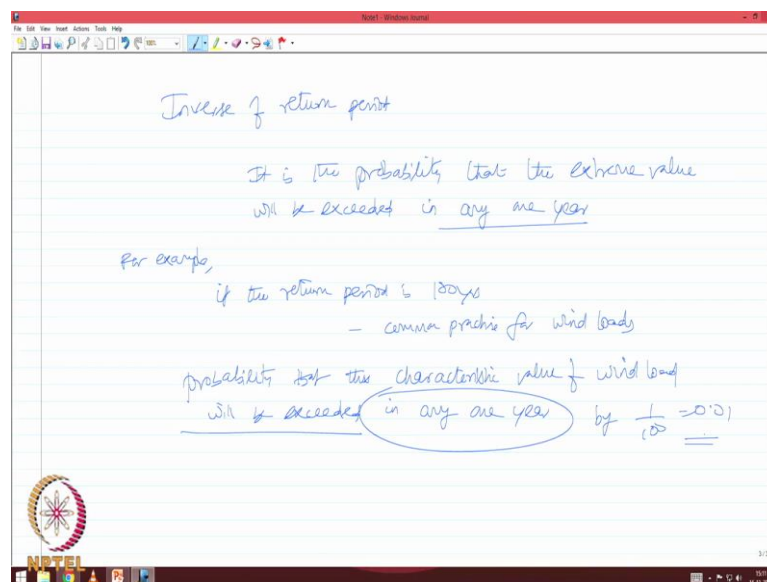 Note1 - Windows Journal
File Edit View Insert Actions Tools Help
Inverse of return period
It is the probability that the extreme value
will be exceeded in any one year
For example,
if the return period is 100 yrs
– common practice for wind loads
probability that this characteristic value of wind load
will be exceeded in any one year by 1/100 = 0.01
NPTEL